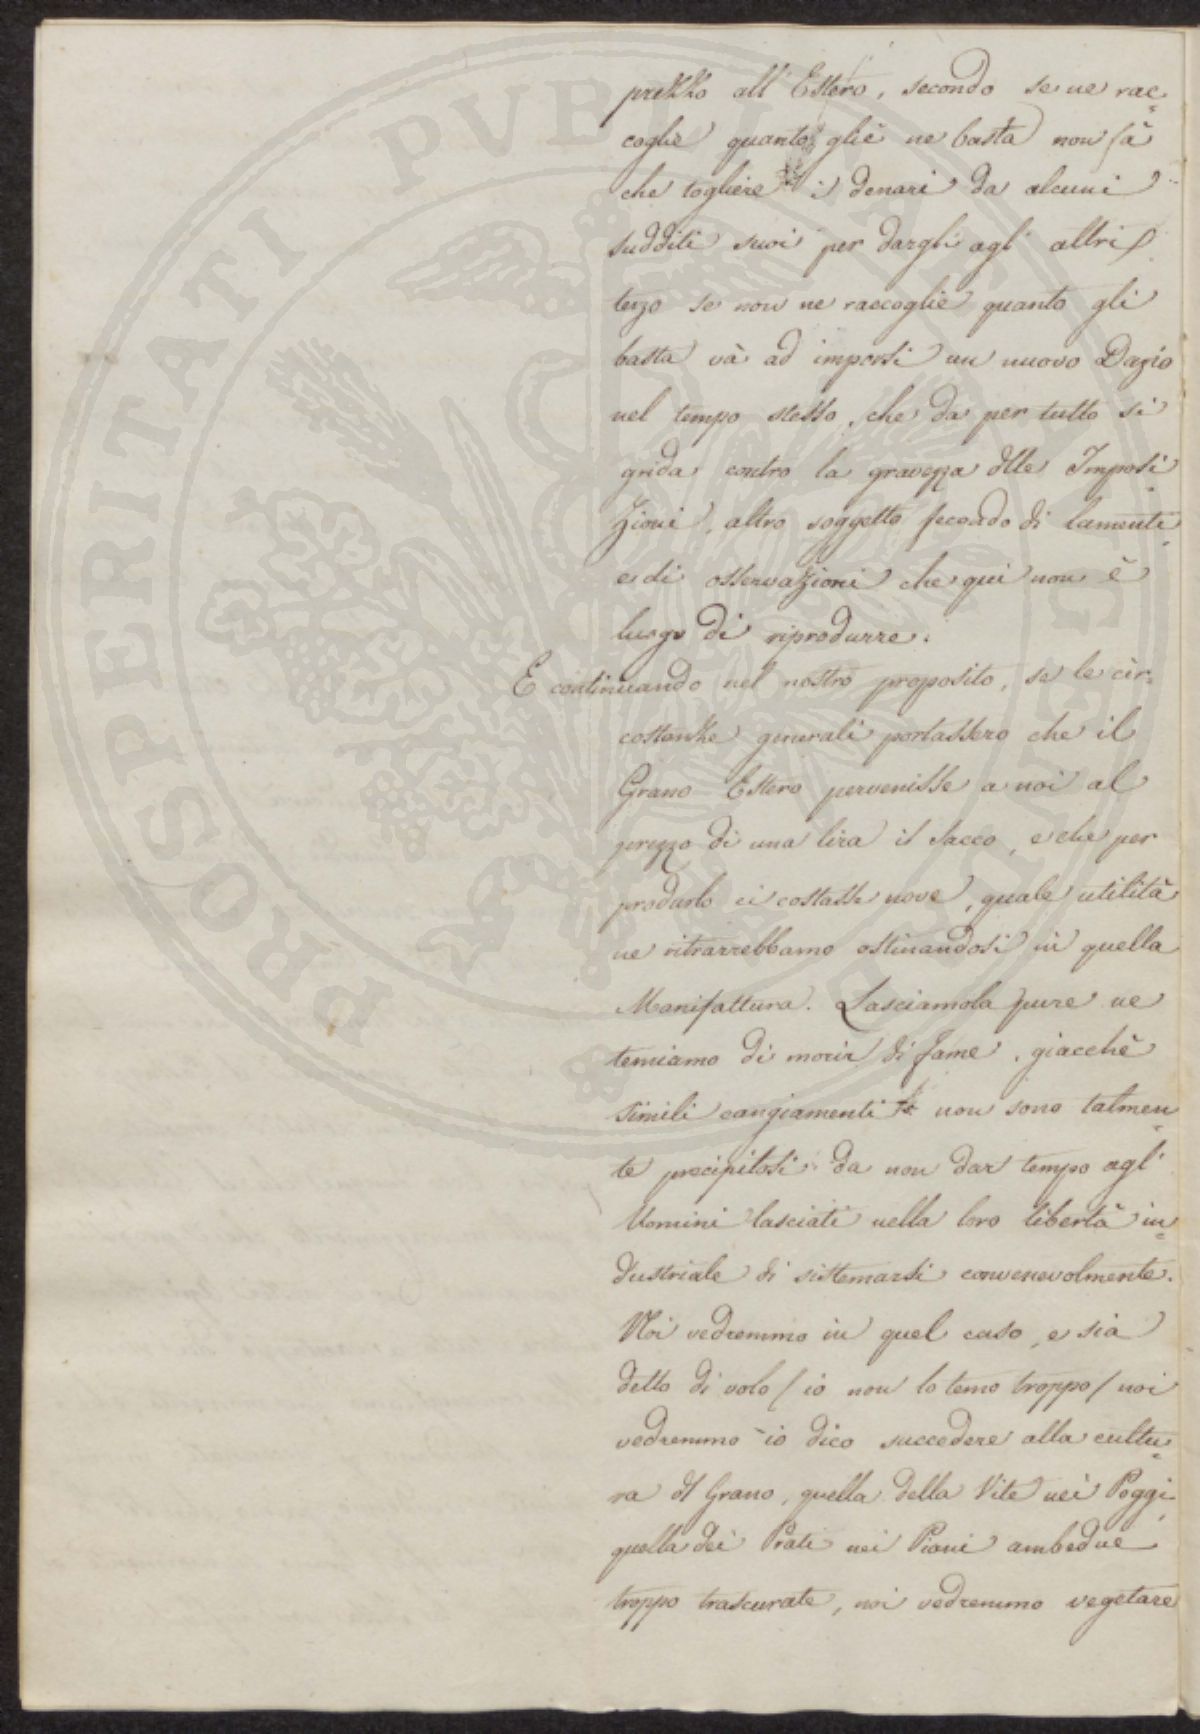 prezzo all' Estero, secondo se ne rac=
coglie quanto gliè ne basta non fà
che togliere i denari da alcuni
sudditi suoi per dargli agl' altri,
terzo se non ne raccoglie quanto gli
basta và ad imporsi un nuovo Dazio
nel tempo stesso, che da per tutto si
grida contro la gravezza dlle Imposi=
zioni, altro soggetto fecondo di lamenti
e di osservazioni che qui non è
luogo di riprodurre.
E continuando nel nostro proposito, se le cir=
costanze generali portassero che il
Grano Estero pervenisse a noi al
prezzo di una lira il Sacco, e che per
produrlo ci costasse nove, quale utilità
ne ritrarrebbamo ostinandosi in quella
Manifattura. Lasciamola pure ne
temiamo di morir di fame, giacchè
simili cangiamenti non sono talmen=
te precipitosi da non dar tempo agl'
Uomini lasciati nella loro libertà in=
dustriale di sistemarsi convenevolmente.
Noi vedremmo in quel caso, e sia
detto di volo / io non lo temo troppo / noi
vedremmo io dico succedere alla cultu=
ra dl Grano, quella della Vite nei Poggi
quella dei Prati nei Piani ambedue
troppo trascurate, noi vedremmo vegetare
PROSPERITATI PVBLICAE